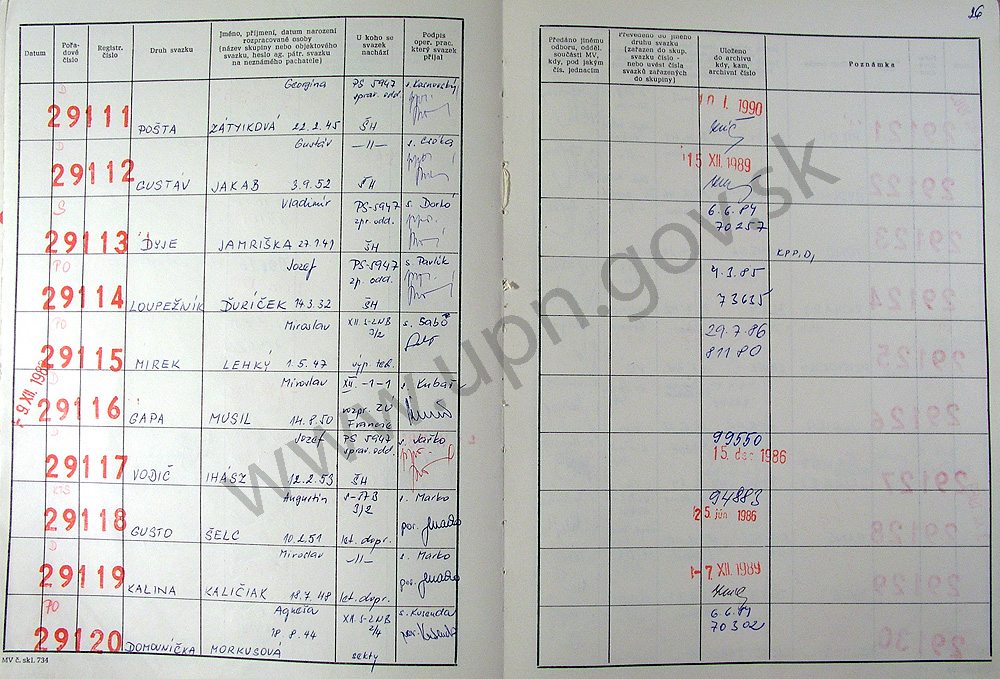 26
Datum
Pořa-
dové
číslo
Registr.
číslo
Druh svazku
Jméno, příjmení, datum narození
rozpracované osoby
(název skupiny nebo objektového
svazku, heslo ag. pátr. svazku
na neznámého pachatele)
U koho se
svazek
nachází
Podpis
oper. prac.
který svazek
přijal
Předáno jinému
odboru, odděl.
součásti MV,
kdy, pod jakým
čís. jednacím
Převedeno do jiného
druhu svazku
(zařazen do skup.
svazku číslo -
nebo uvést čísla
svazků zařazených
do skupiny)
Uloženo
do archivu
kdy, kam,
archivní číslo
Poznámka
D
Georgina
PS 5947
sprav. odd.
29111
POŠTA
ZÁTYIKOVÁ 22.2.45
ŠH
I. 1990
D
Gustáv
—11—
29112
GUSTÁV
JAKAB 3.9.52
ŠH
15 XII. 1989
S
Vladimír
PS-5947
zpr. odd.
s. Dorko
29113
DYJE
JAMRIŠKA 27.1.41
ŠH
6.6.84
70257
KPP, D,
PO
Jozef
PS-5947
zp. odd.
s. Pavlík
29114
LOUPEŽNÍK
ĎURÍČEK 14.3.32
ŠH
4.3.85
73635
PO
Miroslav
XII. S-ZNB
3/2
s. Sabo
29115
MIREK
LEHKÝ 1.5.47
výp. tech.
29.7.86
81180
- 9 XII. 1986
D
Miroslav
XII. -1-1
s. Kubaš
29116
GÁPA
MUSIL 14.8.50
rozpr. ZÚ
Francie
D
Jozef
PS 5947
sprav. odd.
s. Jarko
29117
VODIČ
IHÁSZ 12.2.53
ŠH
99550
15 dec 1986
KTS
Augustin
3/2
s. Marko
29118
GUSTO
ŠELC 10.2.51
let. dopr.
por.
94883
25. jún 1986
D
Miroslav
—11—
s. Marko
29119
KALINA
KALIČIAK 18.7.48
let. dopr.
por.
- 7 XII. 1989
PO
Agneša
18.8.44
XII. S-ZNB
2/4
s. Kusenda
29120
DOMOVNÍČKA
MORKUSOVÁ
sekty
por. Kusenda
6.6.84
70302
MV č. skl. 734
www.upn.gov.sk